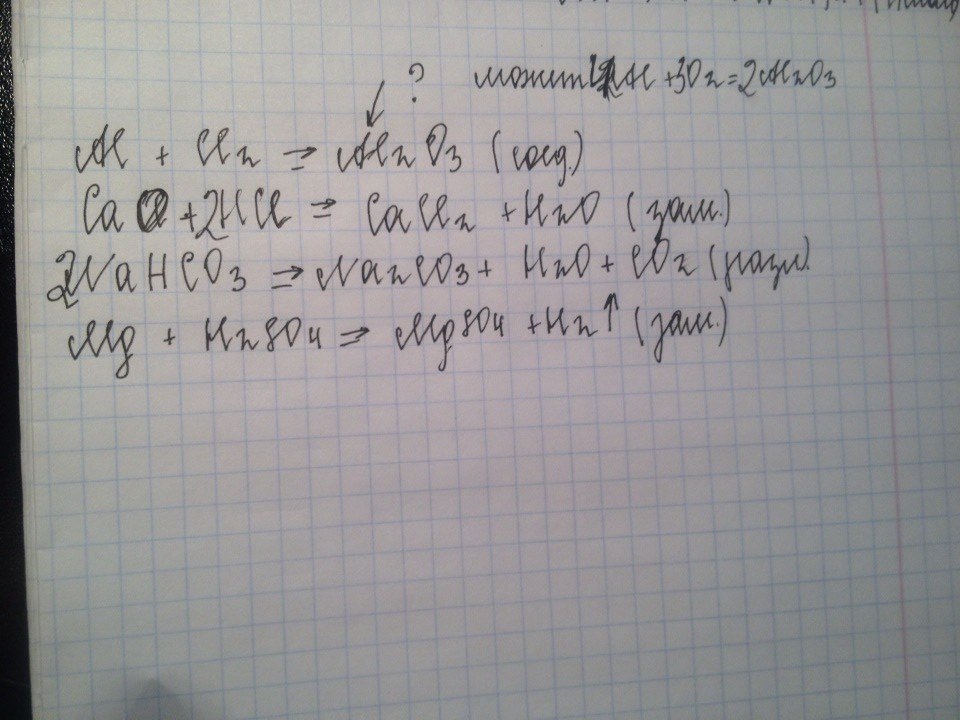 ? может 4Al + 3O2 = 2Al2O3
Al + Cl2 ⇒ Al2O3 (соед.)
CaO + 2HCl ⇒ CaCl2 + H2O (зам.)
2NaHCO3 ⇒ Na2CO3 + H2O + CO2 (разл.)
Mg + H2SO4 ⇒ MgSO4 + H2↑ (зам.)